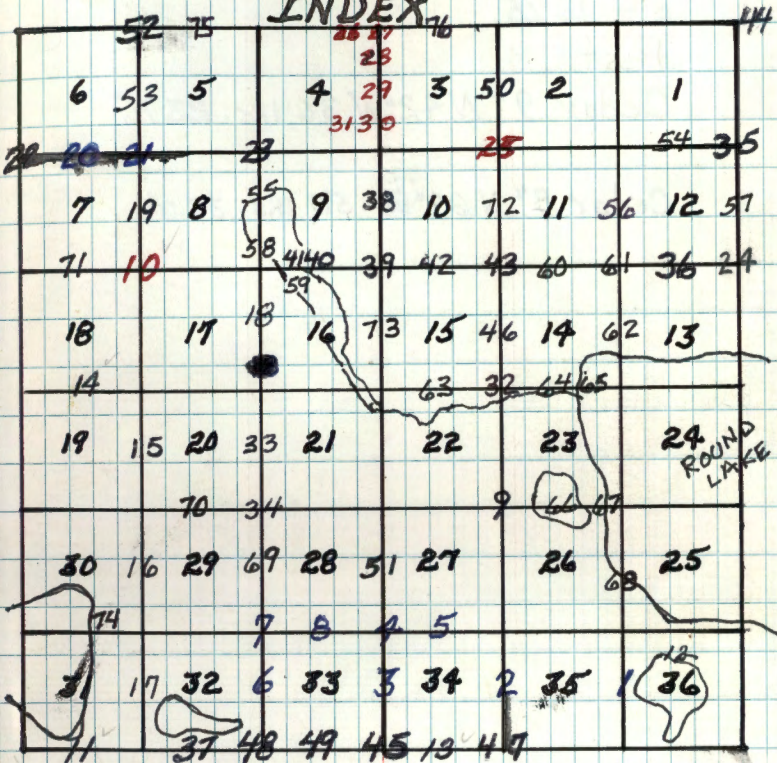 INDEX
52 75 26 27 76 44
28
6 53 5 4 29 3 50 2 1
31 30
22 20 21 23 25 54 35
55
7 19 8 9 38 10 72 11 56 12 57
58
71 10 41 40 39 42 43 60 61 36 24
59
18 17 18 16 73 15 46 14 62 13
14 63 32 64 65
19 15 20 33 21 22 23 24
ROUND
LAKE
70 34 9 66 67
30 16 29 69 28 51 27 26 25
68
74 7 8 4 5
12
31 17 32 6 33 3 34 2 35 1 36
11 37 48 49 45 13 47